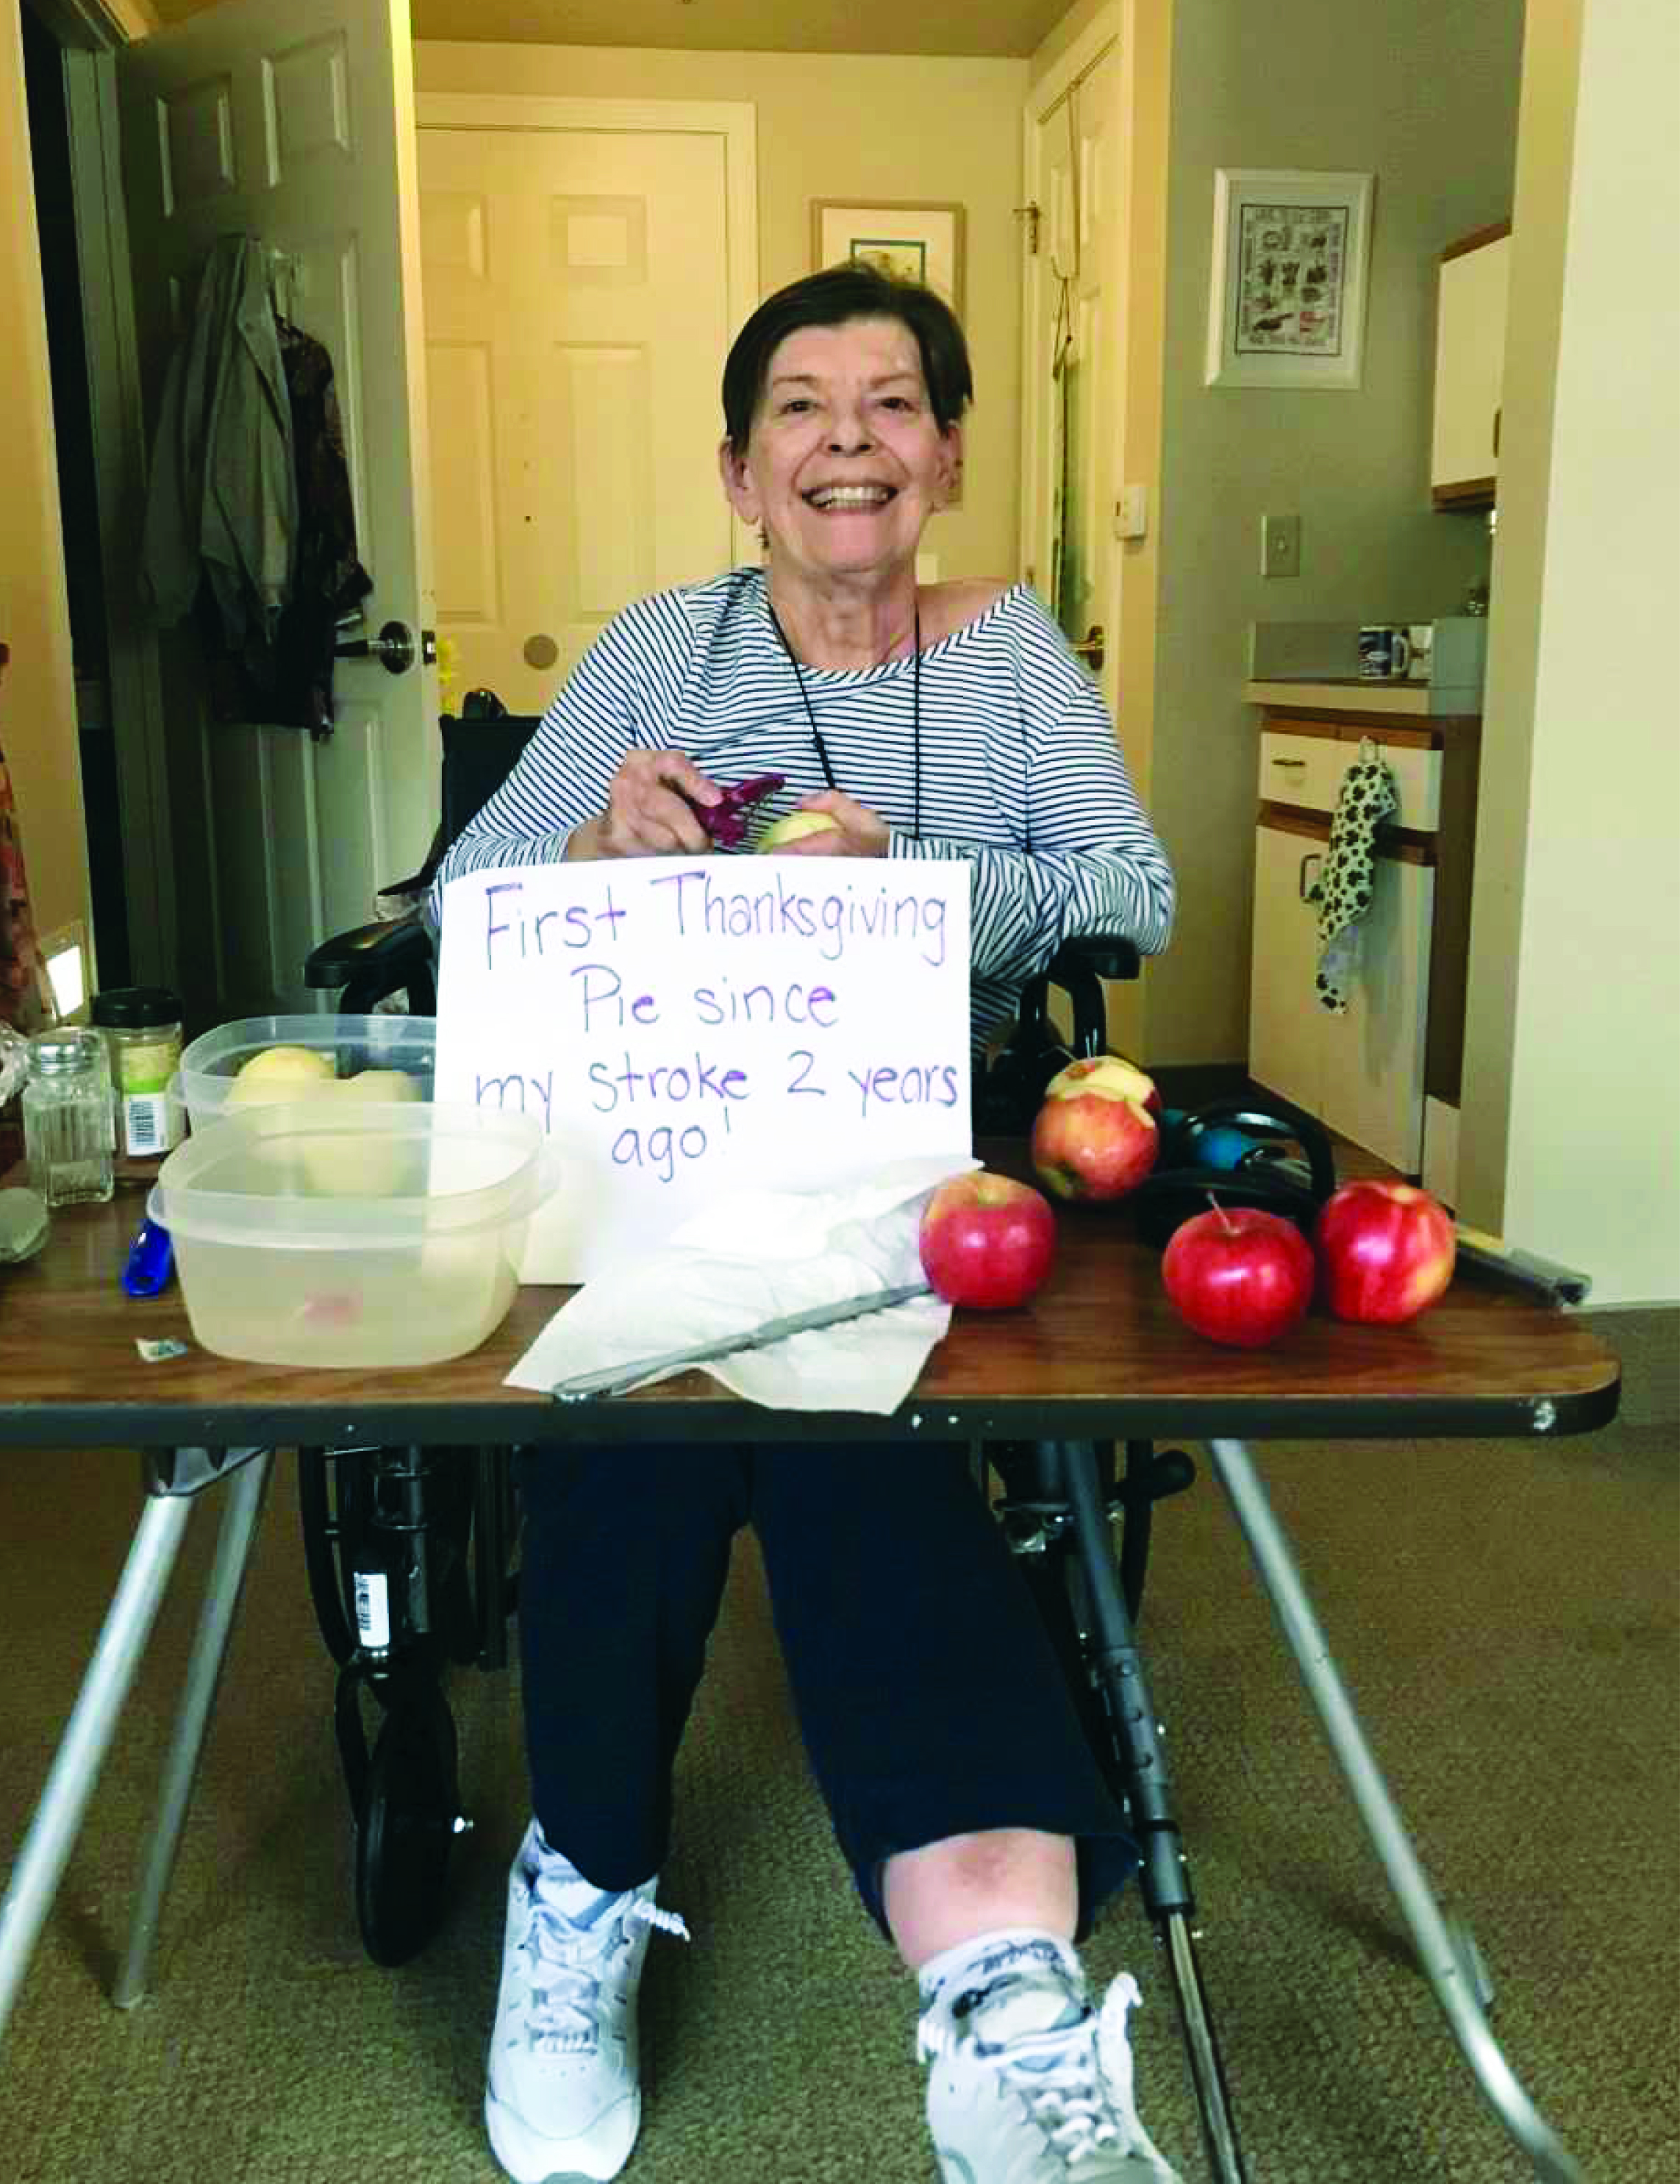 First Thanksgiving
Pie since
my stroke 2 years
ago!